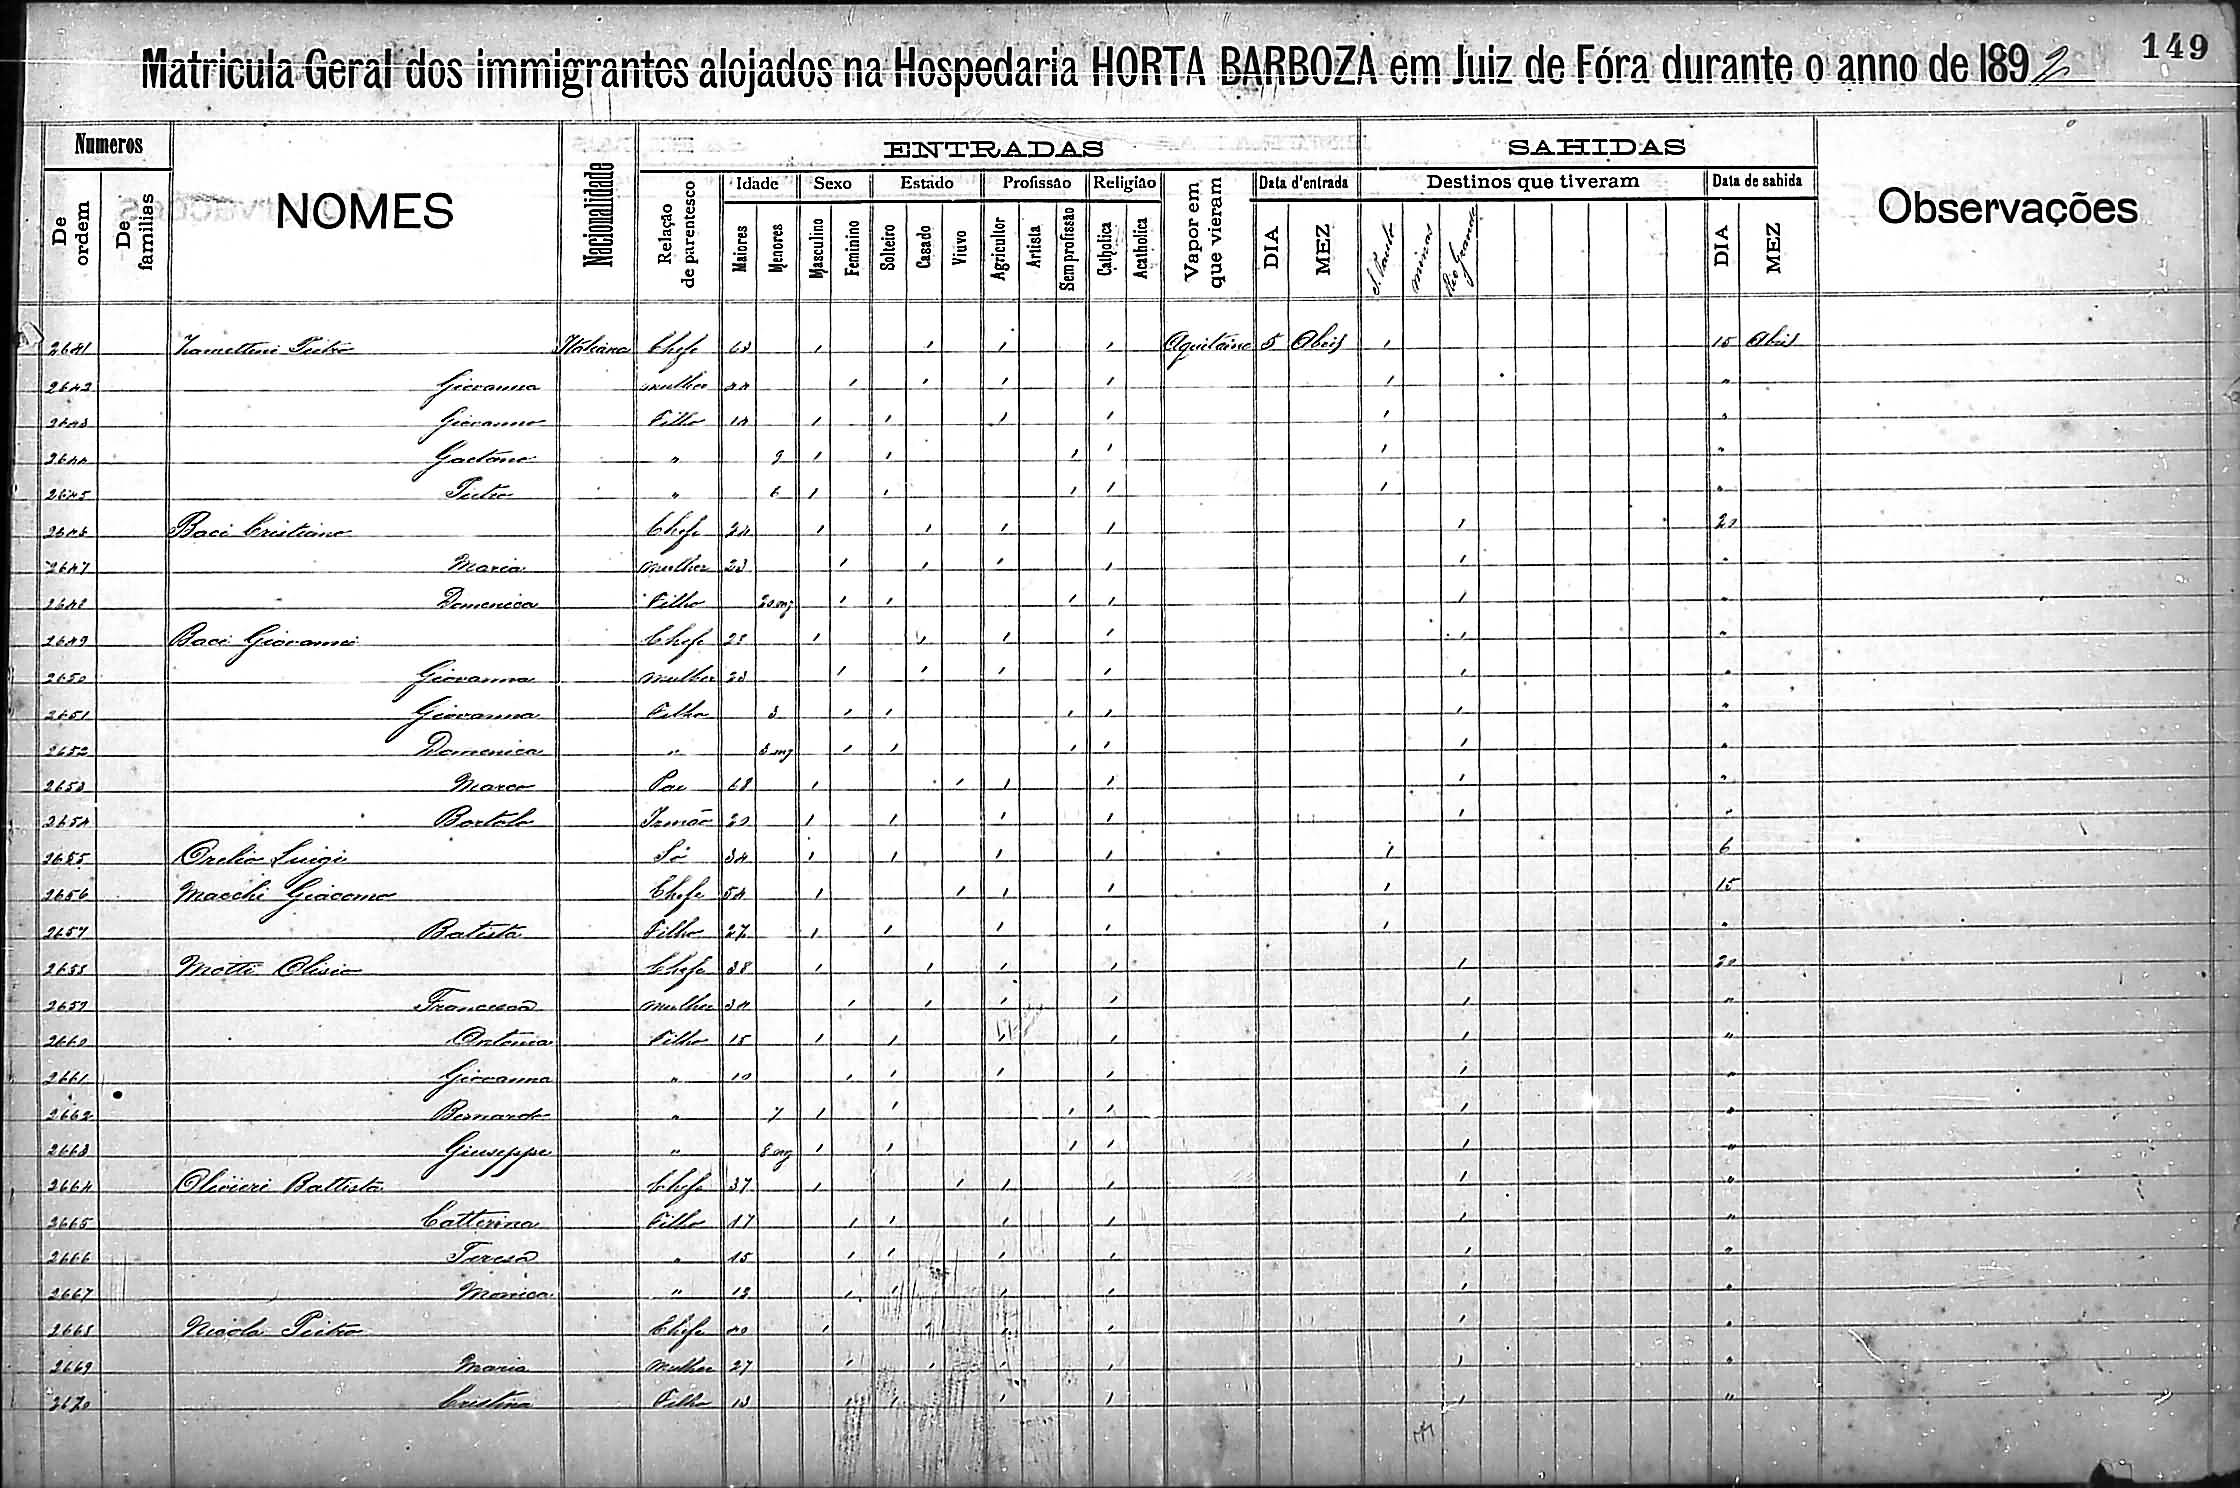 149
Matricula Geral dos immigrantes alojados na Hospedaria HORTA BARBOZA em Juiz de Fóra durante o anno de 1892
Numeros NOMES Nacionalidade ENTRADAS SAHIDAS Observações
De ordem De familias Relação de parentesco Idade Sexo Estado Profissão Religião Vapor em que vieram Data d'entrada Destinos que tiveram Data de sahida
Maiores Menores Masculino Feminino Solteiro Casado Viuvo Agricultor Artista Sem profissão Catholica Acatholica DIA MEZ S. Paulo Minas Rio Grande DIA MEZ
2641 Pietro Italiana Chefe 1 1 1 1 Aquitaine 5 Abril 1 15 Abril
2642 Giovanna mulher 44 1 1 1 1 1 "
2643 Giovanno Filho 14 1 1 1 1 1 "
2644 Gaetano " 9 1 1 1 1 1 "
2645 Pietro " 6 1 1 1 1 1 "
2646 Baci Cristiano Chefe 24 1 1 1 1 1 20
2647 Maria Mulher 23 1 1 1 1 1 "
2648 Domenica Filho 20 mz 1 1 1 1 1 "
2649 Baci Giovanni Chefe 28 1 1 1 1 1 "
2650 Giovanna Mulher 23 1 1 1 1 1 "
2651 Giovanna Filho 3 1 1 1 1 1 "
2652 Domenica " 3 mz 1 1 1 1 1 "
2653 Marco Pae 68 1 1 1 1 1 "
2654 Bortolo Irmão 20 1 1 1 1 1 "
2655 Orelio Luigi Só 34 1 1 1 1 1 6
2656 Macchi Giacomo Chefe 54 1 1 1 1 1 15
2657 Batista Filho 27 1 1 1 1 1 "
2658 Motti Olisio Chefe 38 1 1 1 1 1 20
2659 Francesca Mulher 34 1 1 1 1 1 "
2660 Antonia Filho 15 1 1 1 1 1 "
2661 Giovanna " 10 1 1 1 1 1 "
2662 Bernardo " 7 1 1 1 1 1 "
2663 Giuseppe " 8 mz 1 1 1 1 1 "
2664 Olivieri Battista Chefe 37 1 1 1 1 1 "
2665 Catterina Filho 17 1 1 1 1 1 "
2666 Teresa " 15 1 1 1 1 1 "
2667 Monica " 12 1 1 1 1 1 "
2668 Nicola Pietro Chefe 40 1 1 1 1 1 "
2669 Maria Mulher 27 1 1 1 1 1 "
2670 Cristina Filho 13 1 1 1 1 1 "